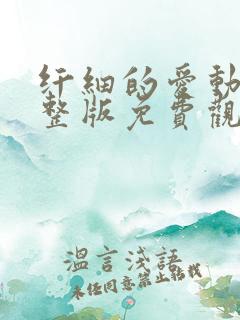 纤細的愛動
整版免費觀
溫言淺語
未经同意禁止转载